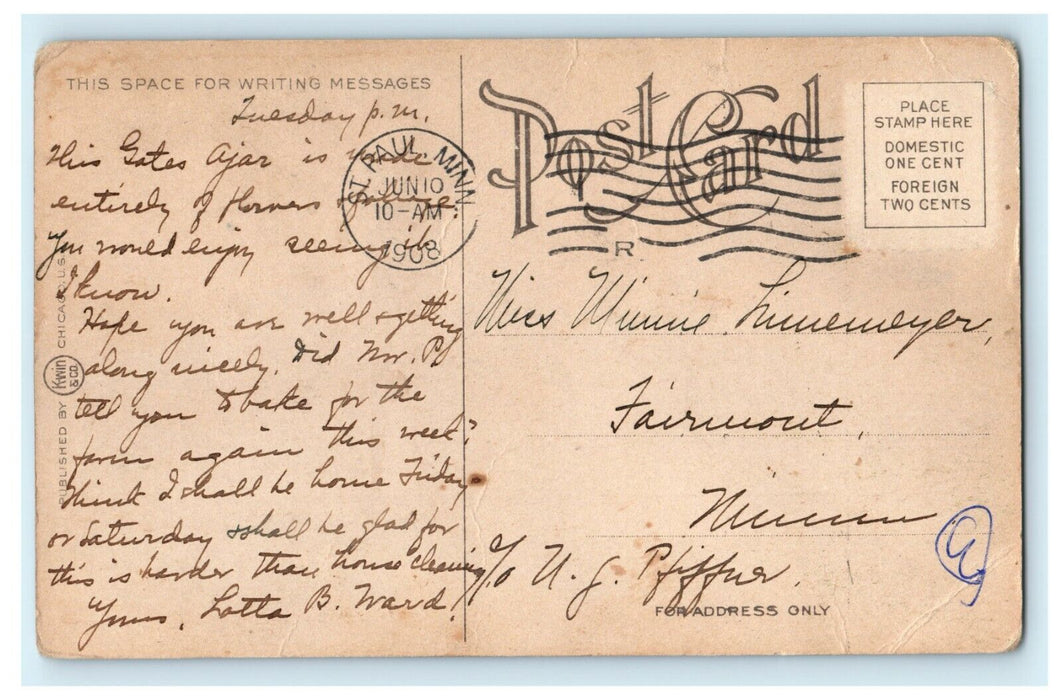 THIS SPACE FOR WRITING MESSAGES
Tuesday p.m.
This Gates Ajar is made
entirely of flowers & foliage.
You would enjoy seeing it
I know.
Hope you are well & getting
along nicely. Did Mr. P.
tell you to bake for the
farm again this week?
Think I shall be home Friday
or Saturday & shall be glad for
this is harder than house cleaning!
Yours, Lotta B. Ward.
PUBLISHED BY Kwin & CO. CHICAGO, U.S.
ST. PAUL, MINN.
JUN 10
10-AM
1908
Post Card
R
PLACE
STAMP HERE
DOMESTIC
ONE CENT
FOREIGN
TWO CENTS
Miss Minnie Linnemeyer,
Fairmont,
Minn
c/o U. G. Pfiffner.
FOR ADDRESS ONLY